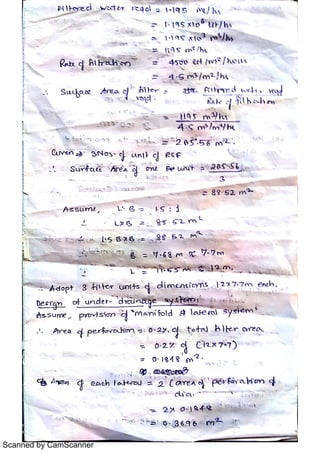 Filtered water reqd = 1.195 Ml/hr
= 1.195 x10⁶ lit/hr
= 1.195 x10³ m³/hr
= 1195 m³/hr
Rate of filtration = 4500 lit/m²/hour
= 4.5 m³/m²/hr
∴ Surface Area of filter reqd. = Filtered water reqd
Rate of filtration
= 1195 m³/hr
4.5 m³/m²/hr
= 265.56 m².
3 Nos. of unit of RSF
∴ Surface Area of one unit = 265.56
3
= 88.52 m²
Assume, L:B = 1.5:1
∴ LxB = 88.52 m²
∴ 1.5BxB = 88.52 m²
∴ B = 7.68 m ≈ 7.7m
∴ L = 11.65 m ≈ 12m.
∴ Adopt 3 filter units of dimensions 12x7.7m each.
Design of under-drainage system:
Assume, provision of "manifold & lateral system"
∴ Area of perforation = 0.2% of total filter area
= 0.2% of (12x7.7)
= 0.1848 m².
Area of each lateral = 2 (area of perforation of
dia.
= 2x 0.1848
= 0.3696 m²
Scanned by CamScanner